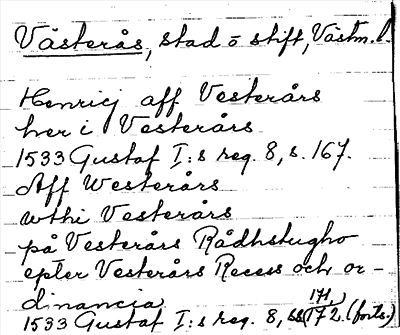 Västerås, stad o stift, Västm. l.
Henricj aff Vesterårs
her i Vesterårs
1533 Gustaf I:s reg. 8, s. 167.
Aff Westerårs
wthi Vesterårs
på Vesterårs Rådhstugho
epter Vesterårs Recess och or-
dinancia
1533 Gustaf I:s reg. 8, ss 171, 172. (forts.)